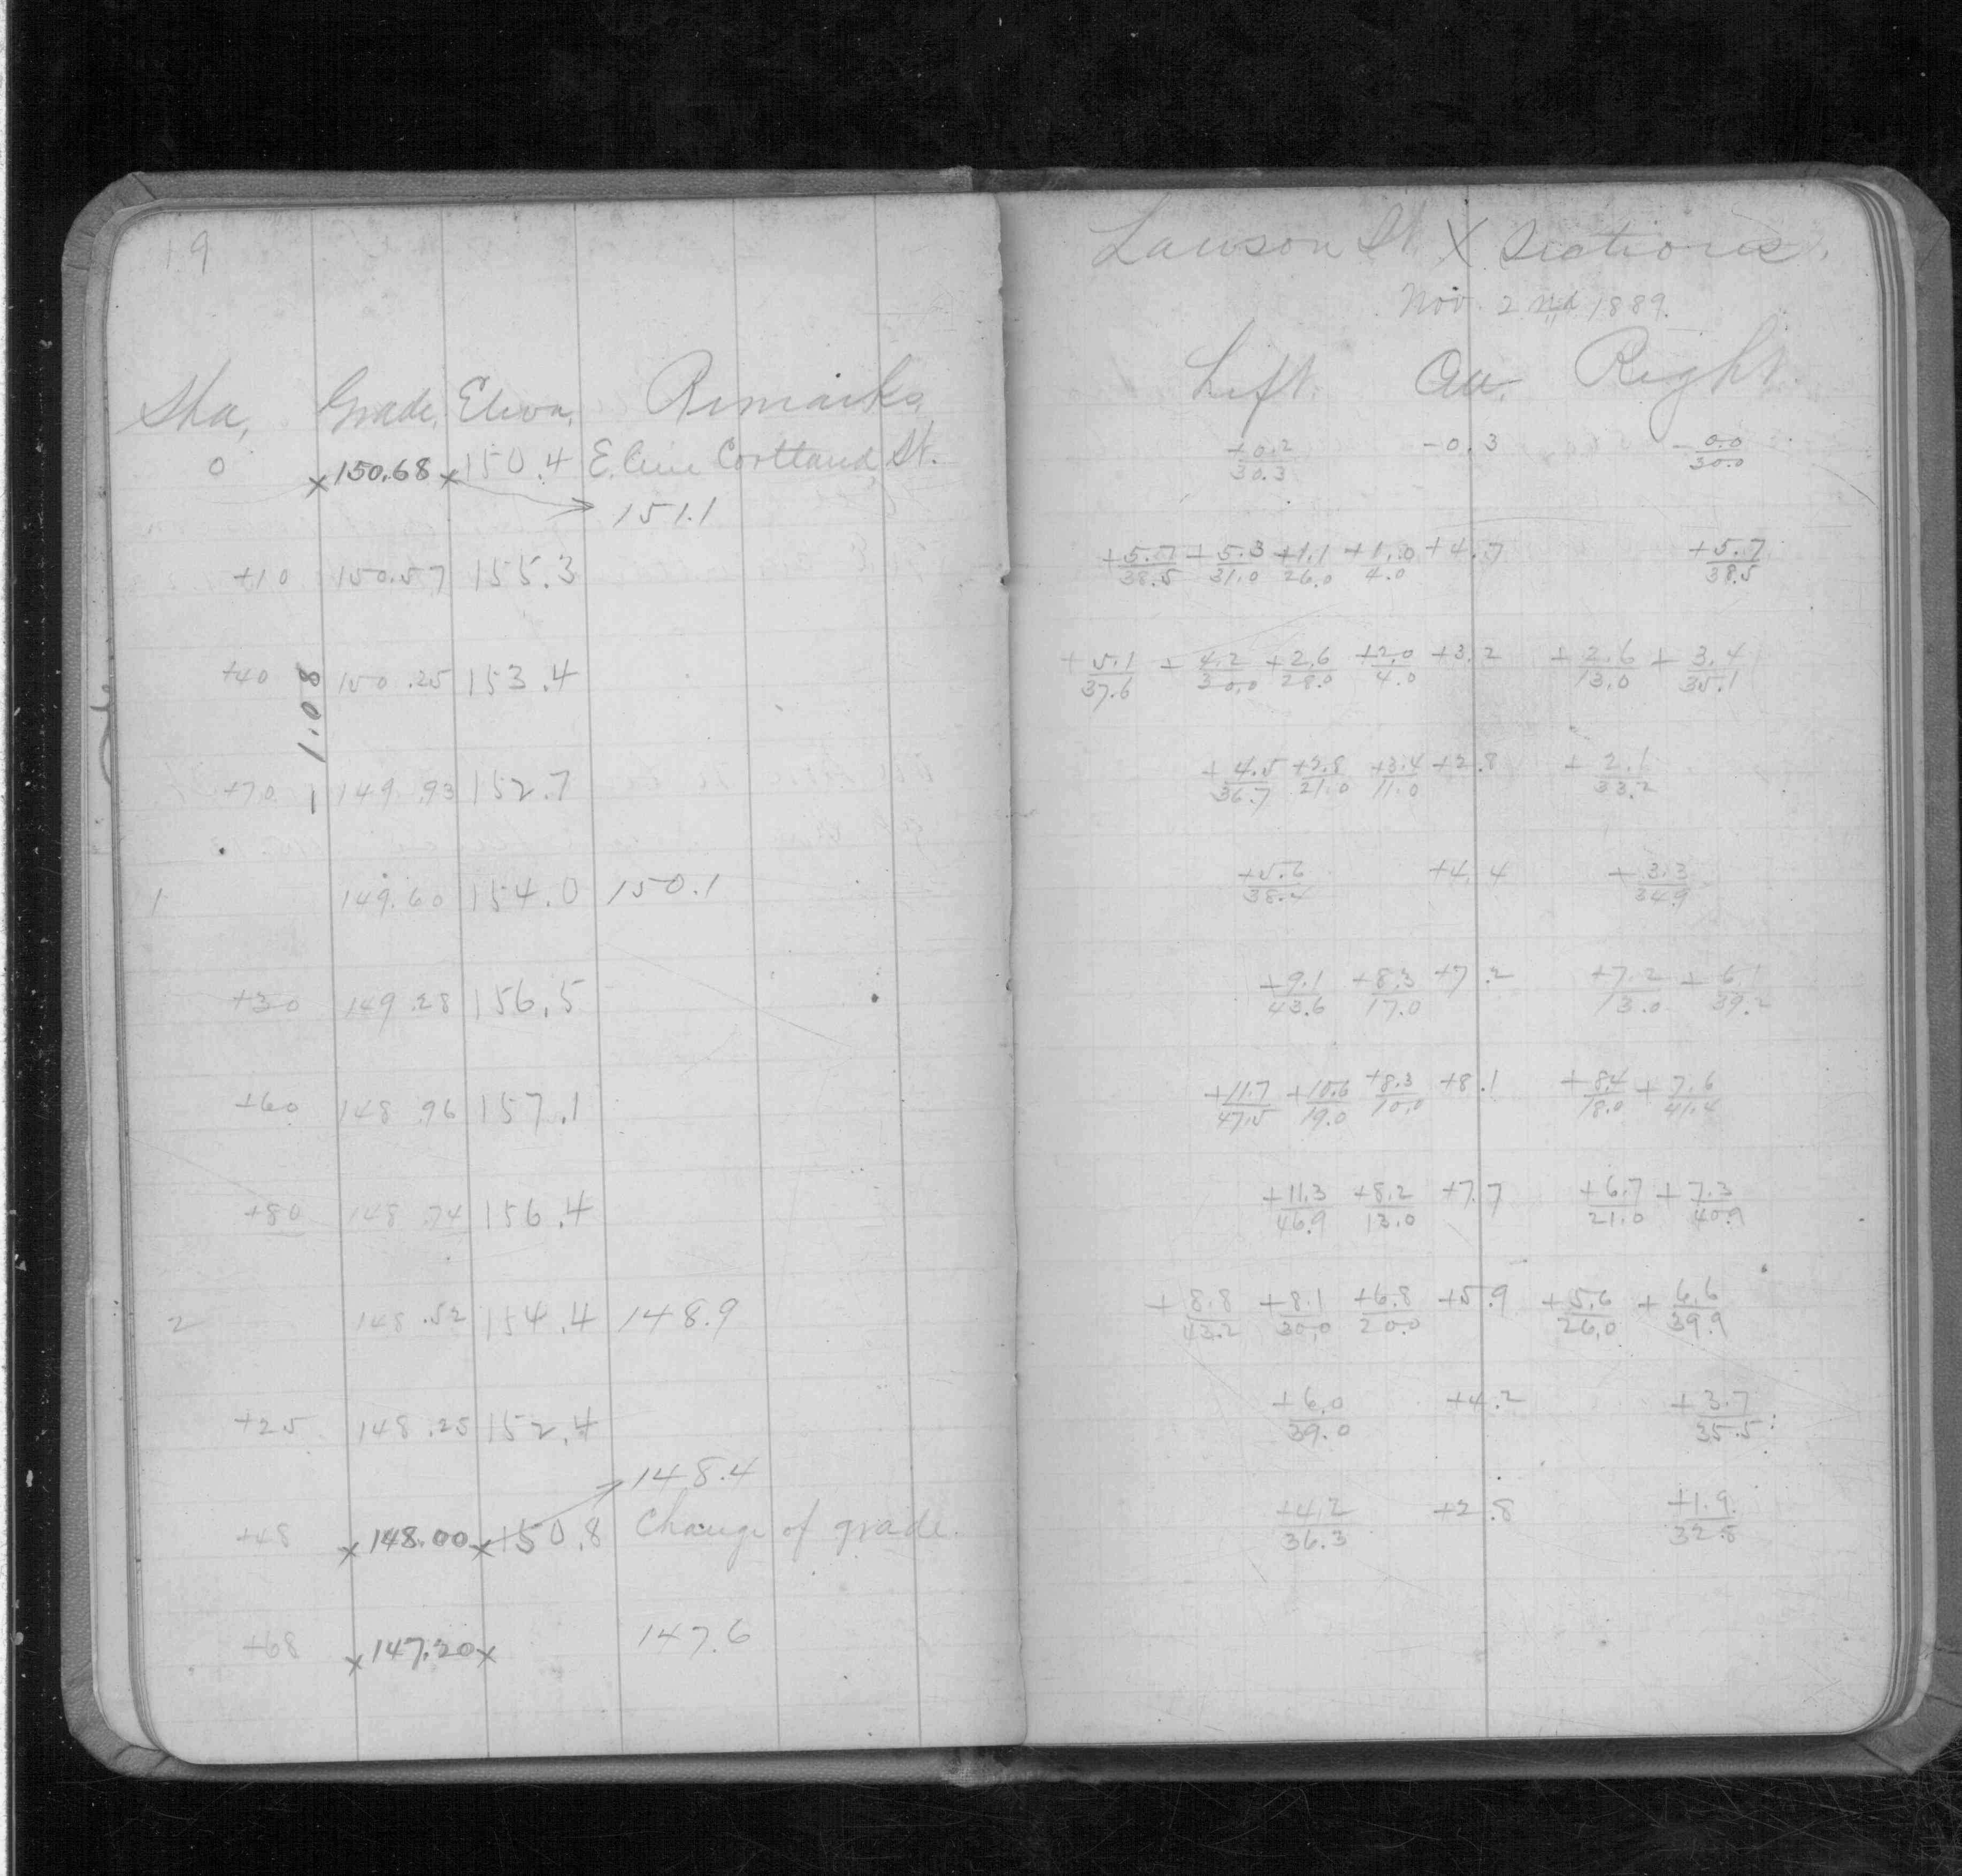 19
Sta. Grade. Eleva. Remarks.
0 x 150.68 x 150.4 E. line Cortland St.
151.1
+10 150.57 155.3
+40 150.25 153.4
1.08
+70 149.93 152.7
1 149.60 154.0 150.1
+30 149.28 156.5
+60 148.96 157.1
+80 148.74 156.4
2 148.52 154.4 148.9
+25 148.25 152.4
148.4
+48 x 148.00 x 150.8 Change of grade.
+68 x 147.20 x 147.6
Lawson St. X Sections.
Nov. 2nd 1889.
Left. Right.
+0.2 -0.3 -0.0
30.3 30.0
+5.7 +5.3 +1.1 +1.0 +4.7 +5.7
38.5 31.0 26.0 4.0 38.5
+5.1 +4.2 +2.6 +2.0 +3.2 +2.6 +3.4
37.6 30.0 28.0 4.0 13.0 35.1
+4.5 +3.8 +3.4 +2.8 +2.1
36.7 21.0 11.0 33.2
+5.6 +4.4 +3.3
38.4 34.9
+9.1 +8.3 +7.2 +7.2 +6.1
43.6 17.0 13.0 39.2
+11.7 +10.6 +8.3 +8.1 +8.4 +7.6
47.5 19.0 10.0 18.0 41.4
+11.3 +8.2 +7.7 +6.7 +7.3
46.9 13.0 21.0 40.9
+8.8 +8.1 +6.8 +5.9 +5.6 +6.6
43.2 30.0 20.0 26.0 39.9
+6.0 +4.2 +3.7
39.0 35.5
+4.2 +2.8 +1.9
36.3 32.8